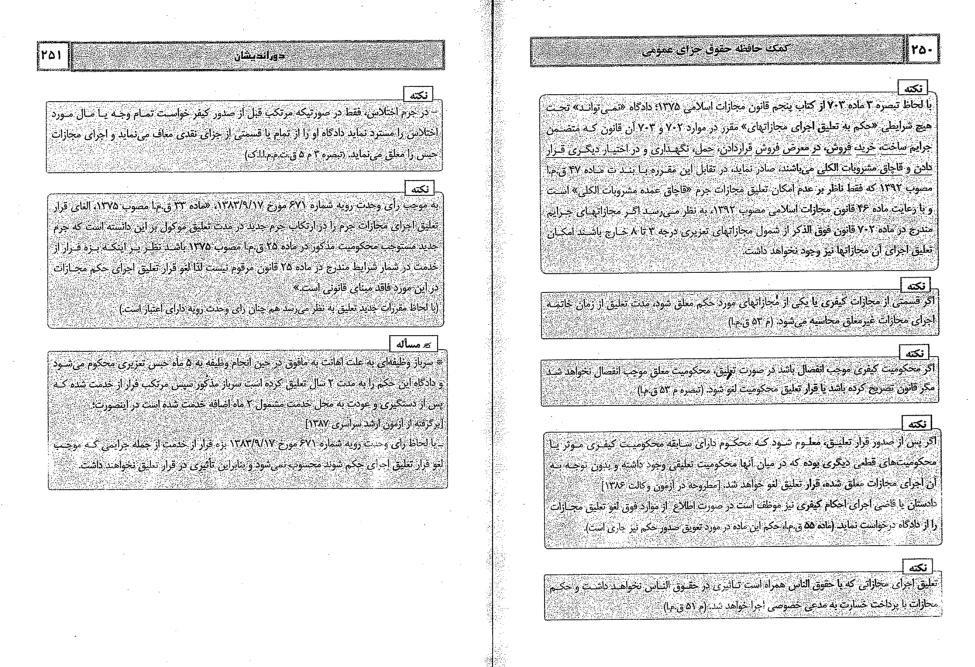 کمک حافظه حقوق جزای عمومی
۲۵۰
نکته
با لحاظ تبصره ۳ ماده ۷۰۳ از کتاب پنجم قانون مجازات اسلامی ۱۳۷۵؛ دادگاه «نمی‌تواند» تحت
هیچ شرایطی «حکم به تعلیق اجرای مجازاتهای» مقرر در موارد ۷۰۲ و ۷۰۳ آن قانون که متضمن
جرایم ساخت، خرید، فروش، در معرض فروش قراردادن، حمل، نگهداری و در اختیار دیگری قرار
دادن و قاچاق مشروبات الکلی می‌باشند، صادر نماید، در تقابل این مقرره با بند ت ماده ۴۷ ق.م.ا
مصوب ۱۳۹۲ که فقط ناظر بر عدم امکان تعلیق مجازات جرم «قاچاق عمده مشروبات الکلی» است
و با رعایت ماده ۴۶ قانون مجازات اسلامی مصوب ۱۳۹۲، به نظر می‌رسد اگر مجازاتهای جرایم
مندرج در ماده ۷۰۲ قانون فوق الذکر از شمول مجازاتهای تعزیری درجه ۳ تا ۸ خارج باشند امکان
تعلیق اجرای آن مجازاتها نیز وجود نخواهد داشت.
نکته
اگر قسمتی از مجازات کیفری یا یکی از مجازاتهای مورد حکم معلق شود، مدت تعلیق از زمان خاتمه
اجرای مجازات غیرمعلق محاسبه می‌شود. (م ۵۳ ق.م.ا)
نکته
اگر محکومیت کیفری موجب انفصال باشد در صورت تعلیق، محکومیت معلق موجب انفصال نخواهد شد
مگر قانون تصریح کرده باشد یا قرار تعلیق محکومیت لغو شود. (تبصره م ۵۳ ق.م.ا)
نکته
اگر پس از صدور قرار تعلیق، معلوم شود که محکوم دارای سابقه محکومیت کیفری موثر یا
محکومیت‌های قطعی دیگری بوده که در میان آنها محکومیت تعلیقی وجود داشته و بدون توجه به
آن اجرای مجازات معلق شده، قرار تعلیق لغو خواهد شد. [مطروحه در آزمون وکالت ۱۳۸۶]
دادستان یا قاضی اجرای احکام کیفری نیز موظف است در صورت اطلاع از موارد فوق لغو تعلیق مجازات
را از دادگاه درخواست نماید. (ماده ۵۵ ق.م.ا)، حکم این ماده در مورد تعویق صدور حکم نیز جاری است).
نکته
تعلیق اجرای مجازاتی که با حقوق الناس همراه است تاثیری در حقوق الناس نخواهد داشت و حکم
مجازات یا پرداخت خسارت به مدعی خصوصی اجرا خواهد شد. (م ۵۱ ق.م.ا)
دوراندیشان
۲۵۱
نکته
– در جرم اختلاس، فقط در صورتیکه مرتکب قبل از صدور کیفر خواست تمام وجه یا مال مورد
اختلاس را مسترد نماید دادگاه او را از تمام یا قسمتی از جزای نقدی معاف می‌نماید و اجرای مجازات
حبس را معلق می‌نماید. (تبصره ۳ م ۵ ق.ت.م.م.ا.ا.ک)
نکته
به موجب رأی وحدت رویه شماره ۶۷۱ مورخ ۱۳۸۳/۹/۱۷، «ماده ۳۳ ق.م.ا مصوب ۱۳۷۵، الغای قرار
تعلیق اجرای مجازات جرم را در ارتکاب جرم جدید در مدت تعلیق موکول بر این دانسته است که جرم
جدید مستوجب محکومیت مذکور در ماده ۲۵ ق.م.ا مصوب ۱۳۷۵ باشد نظر بر اینکه بزه فرار از
خدمت در شمار شرایط مندرج در ماده ۲۵ قانون مرقوم نیست لذا لغو قرار تعلیق اجرای حکم مجازات
در این مورد فاقد مبنای قانونی است.»
(با لحاظ مقررات جدید تعلیق به نظر می‌رسد هم چنان رأی وحدت رویه دارای اعتبار است.)
مسأله
* سرباز وظیفه‌ای به علت اهانت به مافوق در حین انجام وظیفه به ۵ ماه حبس تعزیری محکوم می‌شود
و دادگاه این حکم را به مدت ۲ سال تعلیق کرده است سرباز مذکور سپس مرتکب فرار از خدمت شده که
پس از دستگیری و عودت به محل خدمت مشمول ۳ ماه اضافه خدمت شده است در اینصورت؛
[برگرفته از آزمون ارشد سراسری ۱۳۸۷]
– با لحاظ رأی وحدت رویه شماره ۶۷۱ مورخ ۱۳۸۳/۹/۱۷ بزه فرار از خدمت از جمله جرایمی که موجب
لغو قرار تعلیق اجرای حکم شوند محسوب نمی‌شود و بنابراین تأثیری در قرار تعلیق نخواهند داشت.